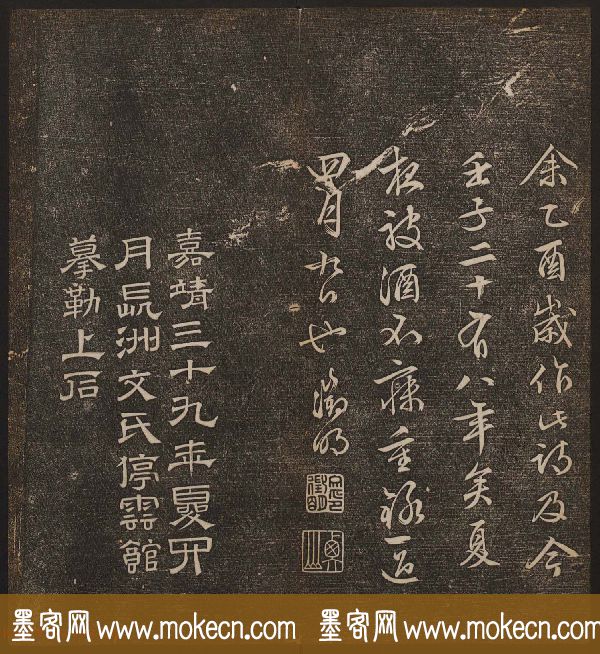 余乙酉歲作此詩及今
壬子二十有八年矣夏
夜被酒不寐重錄一過
四月日也徵明
嘉靖三十九年夏四
月長洲文氏停雲館
摹勒上石
墨客网 www.mokecn.com 墨客网 www.mokecn.com